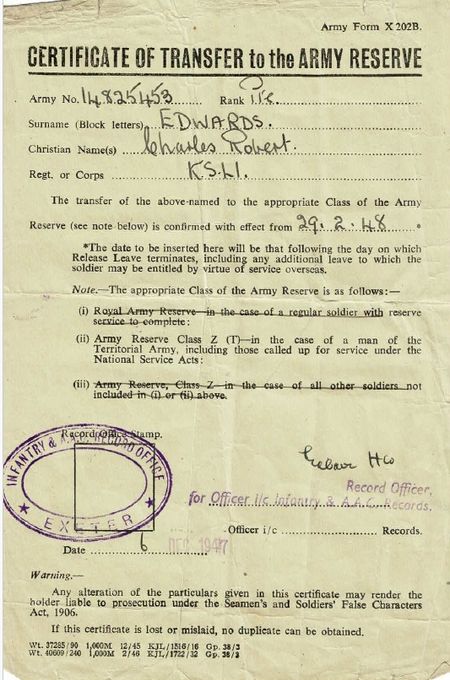 Army Form X 202B.
CERTIFICATE OF TRANSFER to the ARMY RESERVE
Army No. 14825453 Rank Pte.
Surname (Block letters) EDWARDS.
Christian Name(s) Charles Robert.
Regt. or Corps K.S.L.I.
The transfer of the above-named to the appropriate Class of the Army
Reserve (see note below) is confirmed with effect from 29.2.48 *
*The date to be inserted here will be that following the day on which
Release Leave terminates, including any additional leave to which the
soldier may be entitled by virtue of service overseas.
Note.—The appropriate Class of the Army Reserve is as follows:—
(i) Royal Army Reserve—in the case of a regular soldier with reserve
service to complete:
(ii) Army Reserve Class Z (T)—in the case of a man of the
Territorial Army, including those called up for service under the
National Service Acts:
(iii) Army Reserve, Class Z—in the case of all other soldiers not
included in (i) or (ii) above.
Record Office Stamp.
INFANTRY & A.A.C. RECORD OFFICE
EXETER
Record Officer,
for Officer i/c Infantry & A.A.C. Records.
Officer i/c Records.
Date 6 DEC 1947
Warning.—
Any alteration of the particulars given in this certificate may render the
holder liable to prosecution under the Seamen's and Soldiers' False Characters
Act, 1906.
If this certificate is lost or mislaid, no duplicate can be obtained.
Wt. 37285/90 1,000M 12/45 KJL/1516/16 Gp. 38/3
Wt. 40609/240 1,000M 2/46 KJL/1722/32 Gp. 38/3